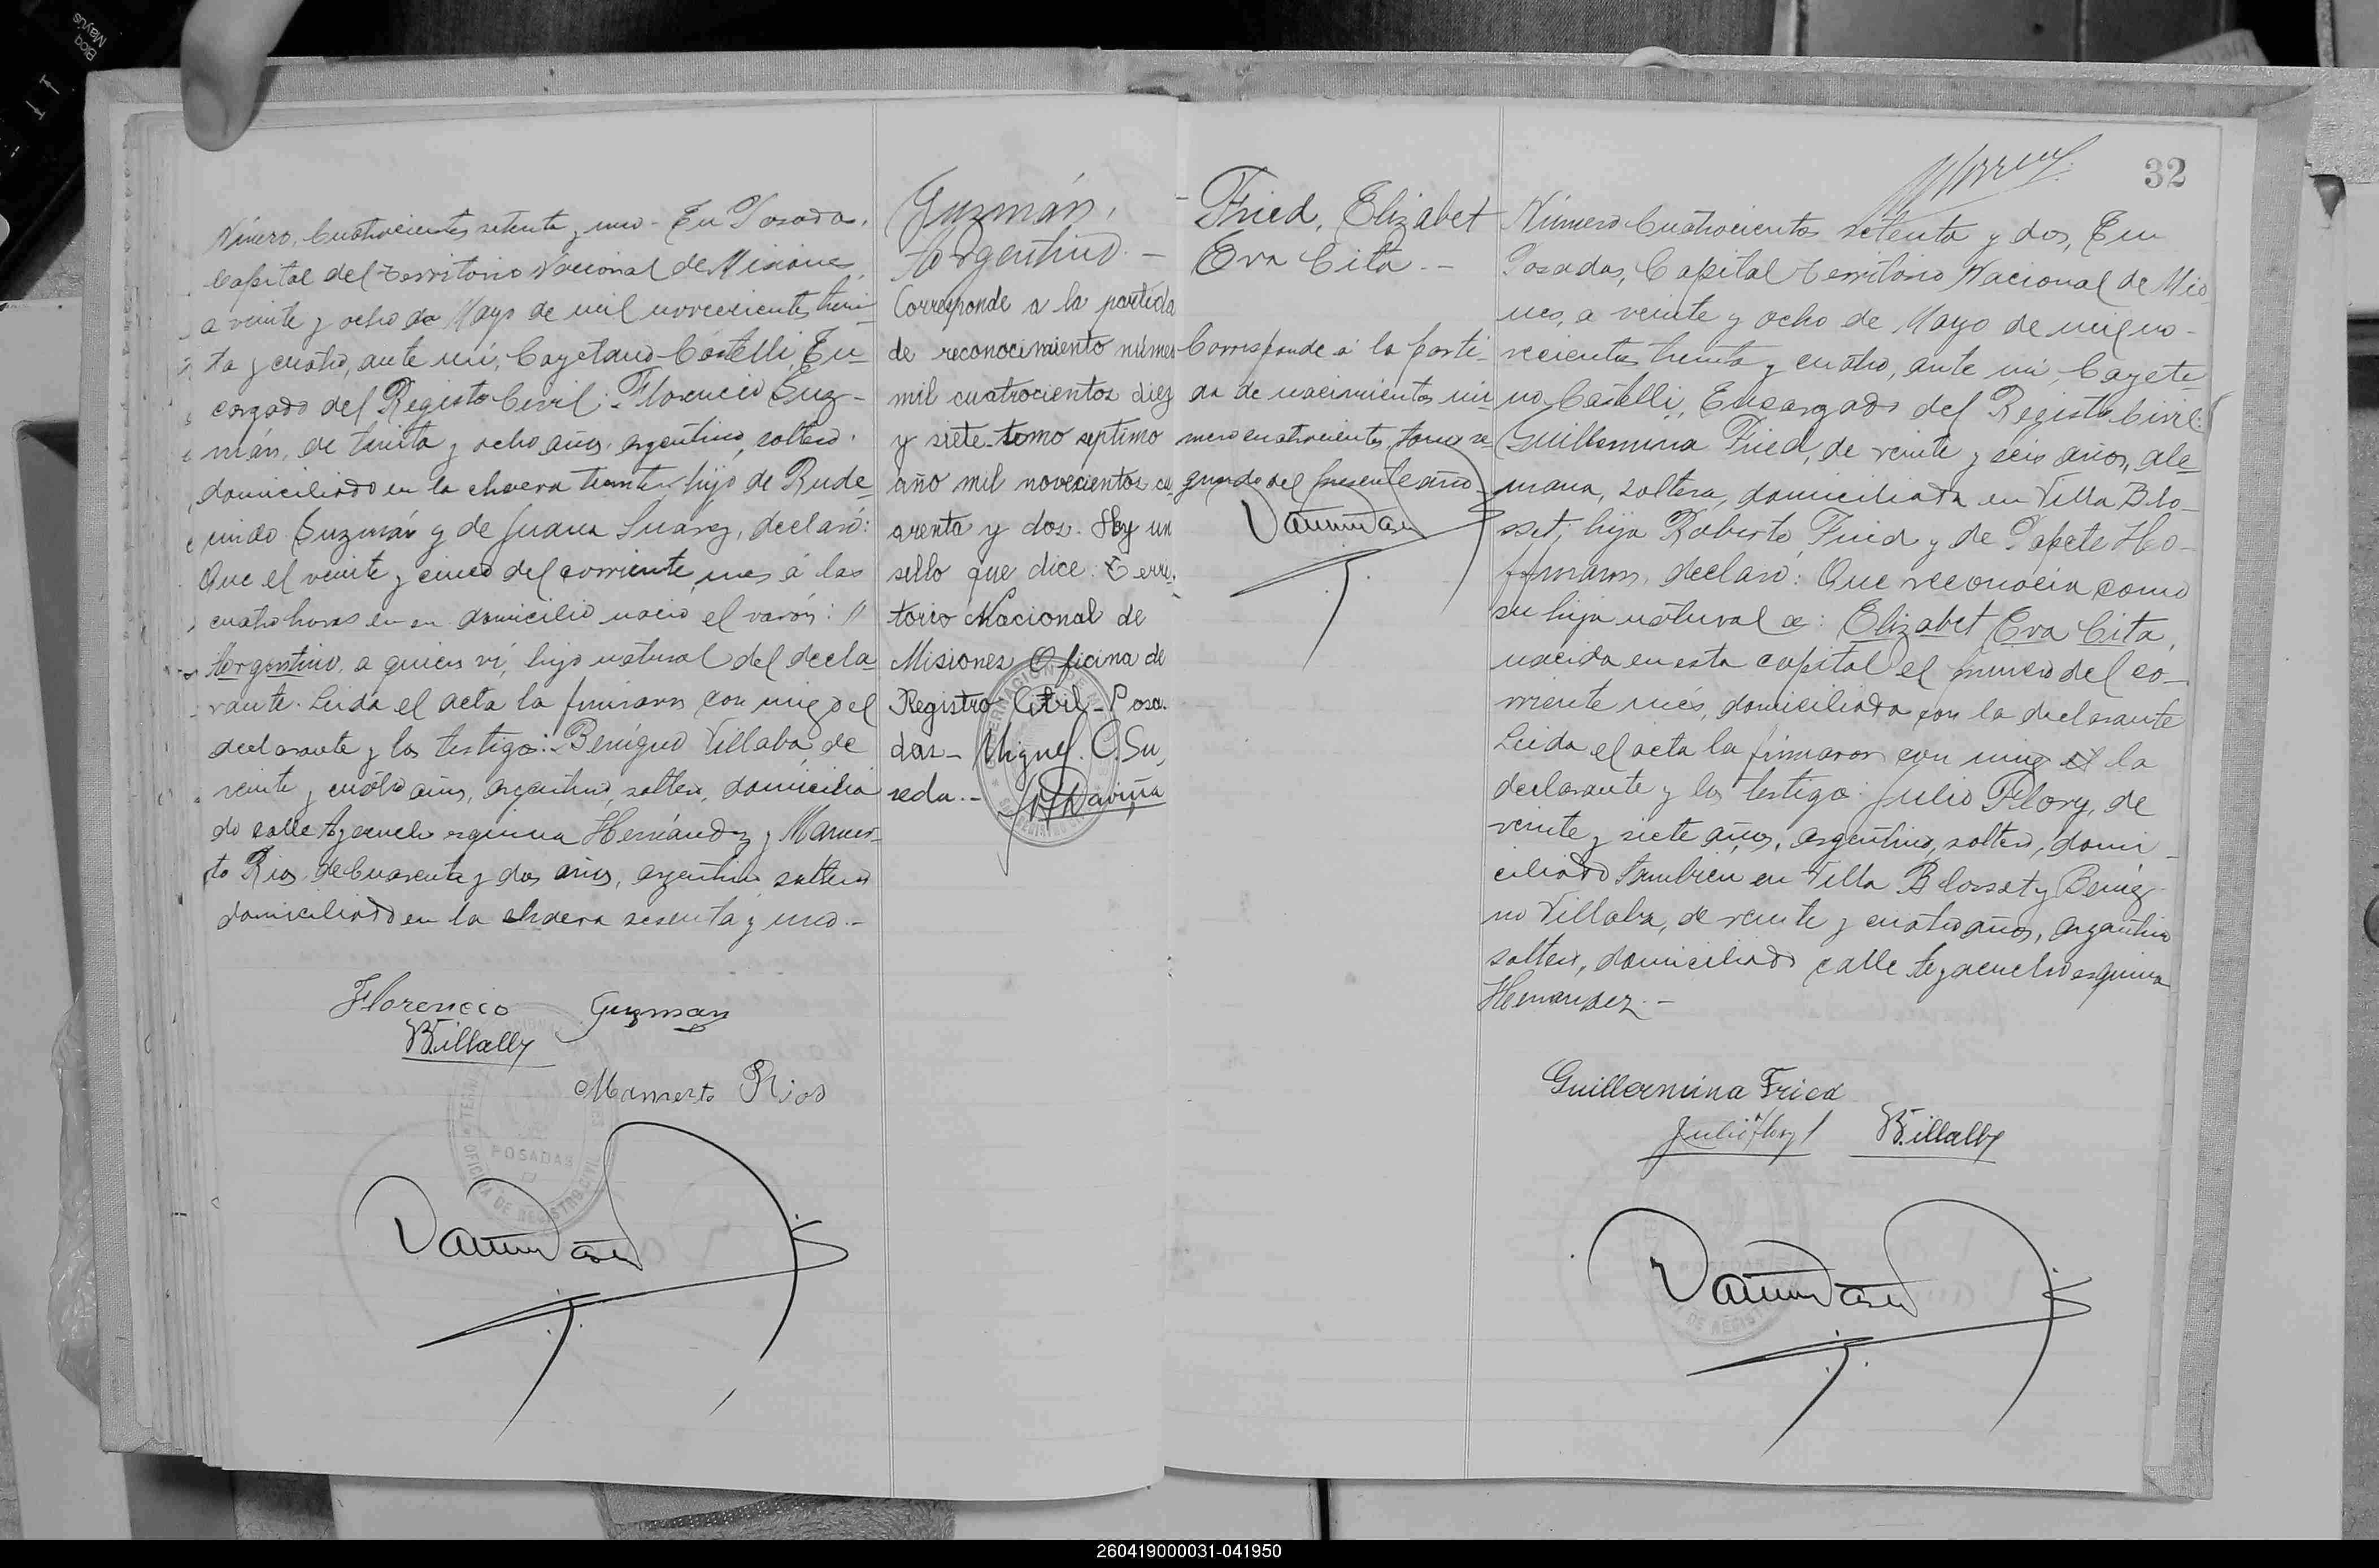 Número Cuatrocientos setenta y uno - En Posadas,
Capital del Territorio Nacional de Misiones,
a veinte y ocho de Mayo de mil novecientos trein-
ta y cuatro, ante mí, Cayetano Castelli, En-
cargado del Registro Civil: Florencio Guz-
mán, de treinta y ocho años, argentino, soltero,
domiciliado en la chacra hijo de Rude-
cindo Guzmán y de Juana Suarez, declaró:
Que el veinte y cinco del corriente mes á las
cuatro horas en su domicilio nació el varón: //
Argentino, a quien ví, hijo natural del decla-
rante. Leida el acta la firmaron con migo el
declarante y los testigos: Benigno Villalba, de
veinte y cuatro años, argentino, soltero, domicilia
do calle Ayacucho esquina Hernández y Mamer-
to Rios, de cuarenta y dos años, argentino soltero
domiciliado en la chacra sesenta y uno.-
Florencio Guzman
B.Villalby
Mamerto Rios
POSADAS
OFICINA DE REGISTRO CIVIL
Guzmán,
Argentino.-
Corresponde a la partida
de reconocimiento número
mil cuatrocientos diez
y siete tomo septimo
año mil novecientos cu-
arenta y dos. Hay un
sello que dice: Terri-
torio Nacional de
Misiones Oficina de
Registro Civil - Posa-
das - Miguel C. Su,
reda.-
Fried, Elizabet
Eva Cita.-
Corresponde á la parti-
da de nacimientos nú-
mero cuatrocientos, tomo se-
gundo del presente año-
32
Número Cuatrocientos setenta y dos, En
Posadas, Capital Territorio Nacional de Misio
nes, a veinte y ocho de Mayo de mil no-
vecientos treinta y cuatro, ante mí, Cayeta
no Castelli, Encargado del Registro Civil:
Guillermina Fried, de veinte y seis años, ale-
mana, soltera, domiciliada en Villa Blo-
sset, hija Roberto Fried y de Ho-
ffmann, declaró: Que reconocía como
su hija natural a: Elizabet Eva Cita,
nacida en esta capital el primero del co-
rriente més, domiciliada con la declarante
Leida el acta la firmaron con migo el la
declarante y los testigos: Julio Flory, de
veinte y siete años, argentino, soltero, domi-
ciliado también en Villa Blosset y Benig-
no Villalba, de veinte y cuatro años, argentino
soltero, domiciliado calle Ayacucho esquina
Hernandez.-
Guillermina Fried
Julio Flory
B.Villalby
260419000031-041950